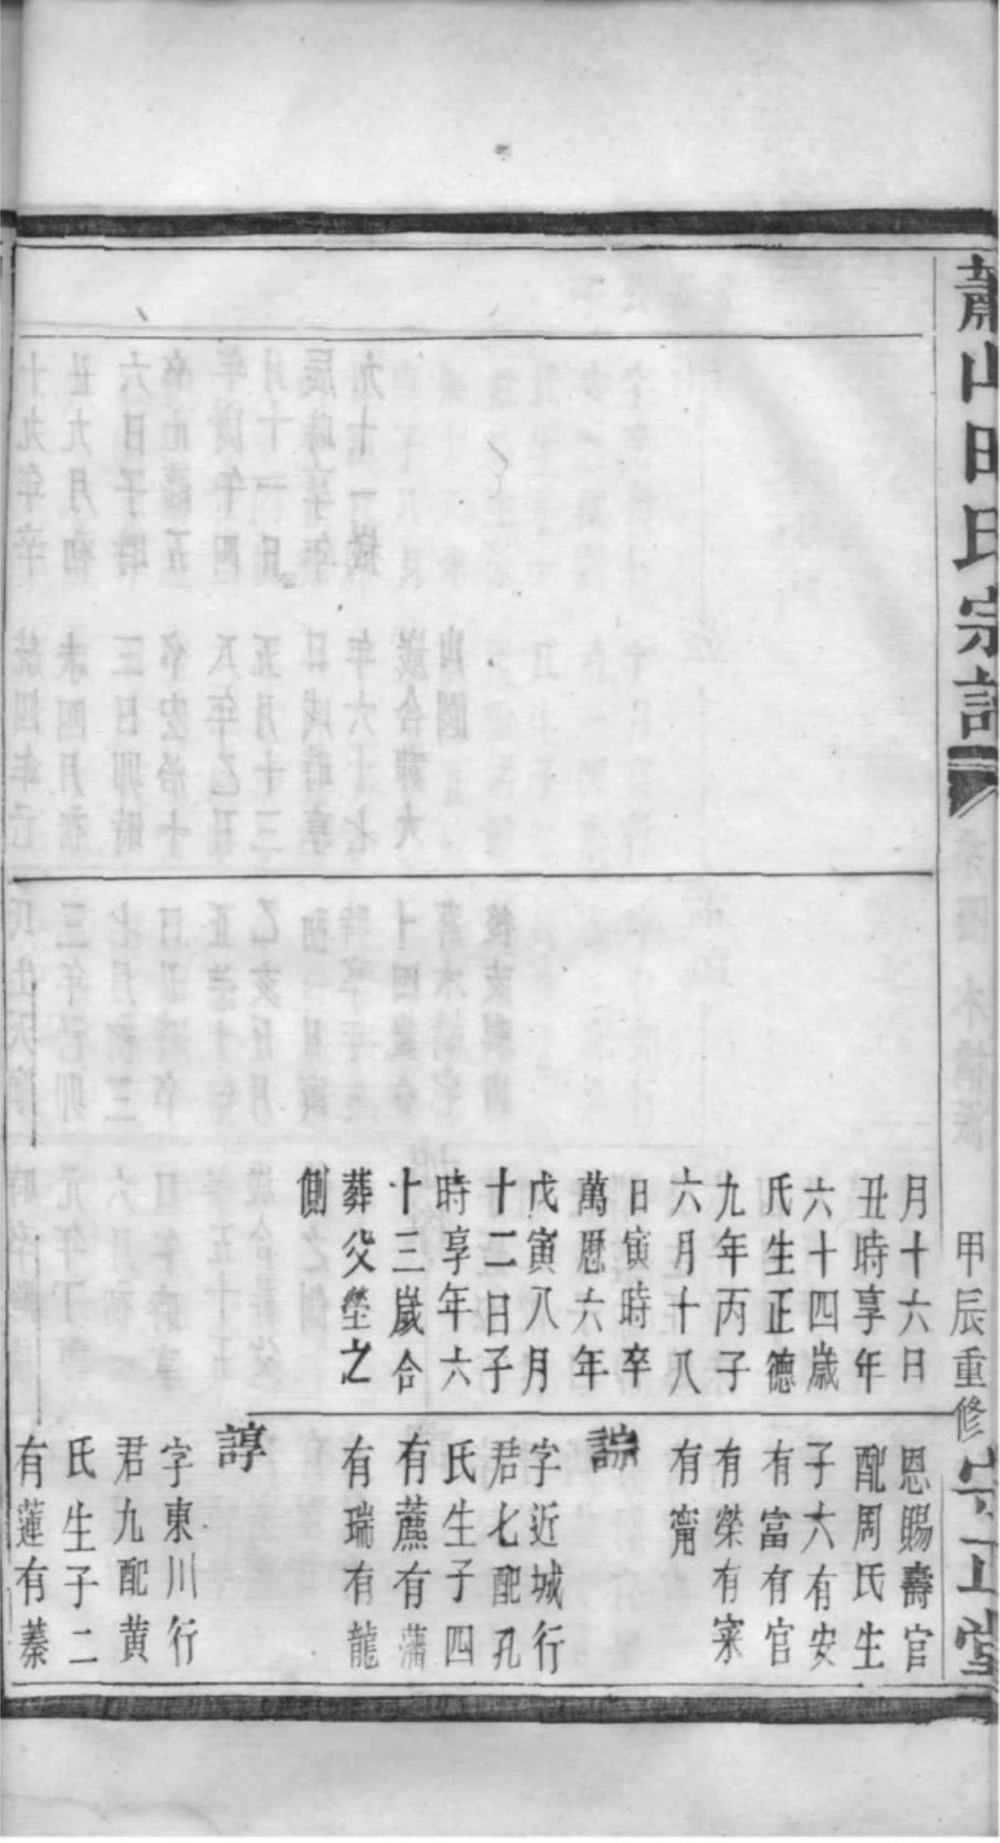 蕭山田氏宗譜
甲辰重修
堂
月十六日
丑時享年
六十四歲
氏生正德
九年丙子
六月十八
日寅時卒
萬曆六年
戊寅八月
十二日子
時享年六
十三歲合
葬父塋之
側
恩賜壽官
配周氏生
子六有安
有富有官
有榮有寀
有甯
字近城行
君七配孔
氏生子四
有藨有蒲
有瑞有龍
諄
字東川行
君九配黃
氏生子二
有蓮有蓁